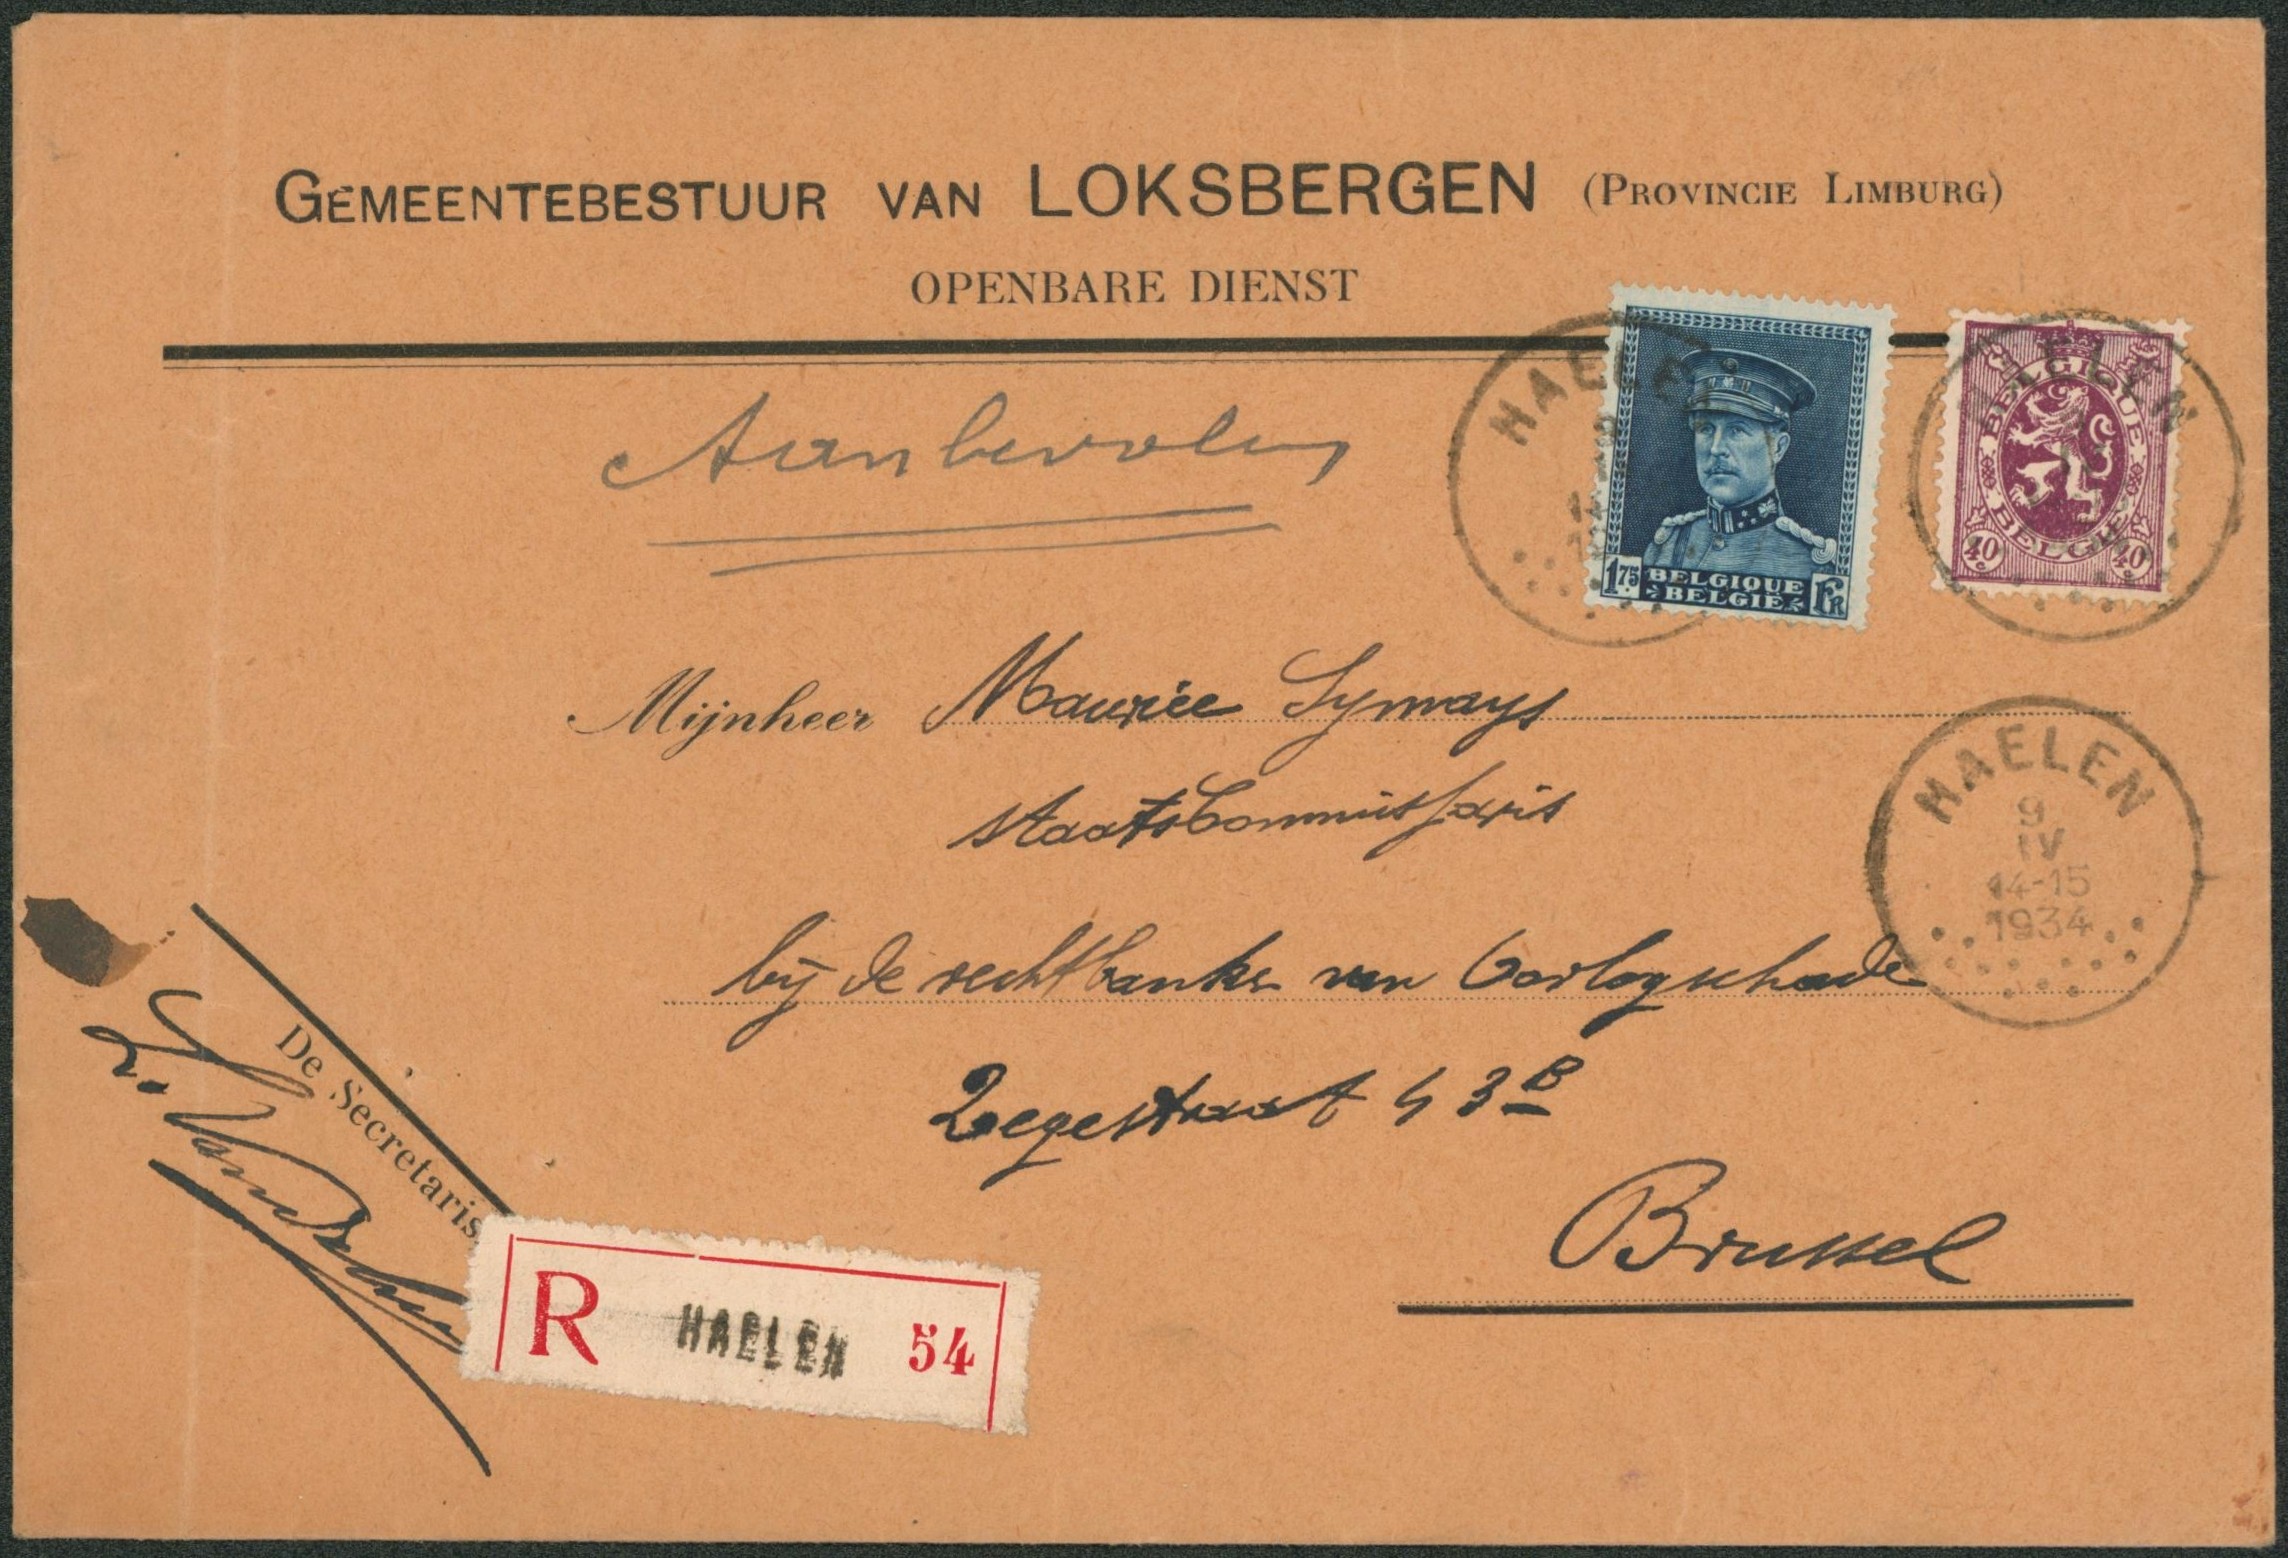 GEMEENTEBESTUUR VAN LOKSBERGEN (PROVINCIE LIMBURG)
OPENBARE DIENST
Aanbevolen
HAELEN
1.75 BELGIQUE BELGIË FR
HAELEN
BELGIQUE
BELGIË
40 40
Mijnheer Maurice Symays
staatsCommissaris
HAELEN
9
IV
14-15
1934
bij de rechtbanke van Oorlogschade
Regestraat 43B
Brussel
De Secretaris,
R HAELEN 54